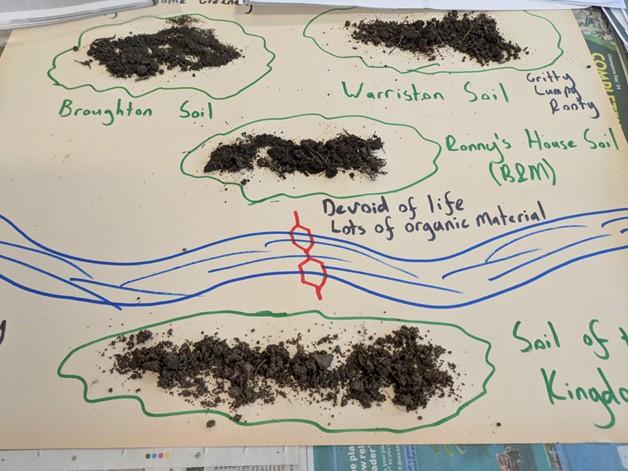 Broughton Soil
Warriston Soil
Gritty
Lumpy
Rooty
Ronny's House Soil
(B&M)
Devoid of life
Lots of organic Material
Soil of